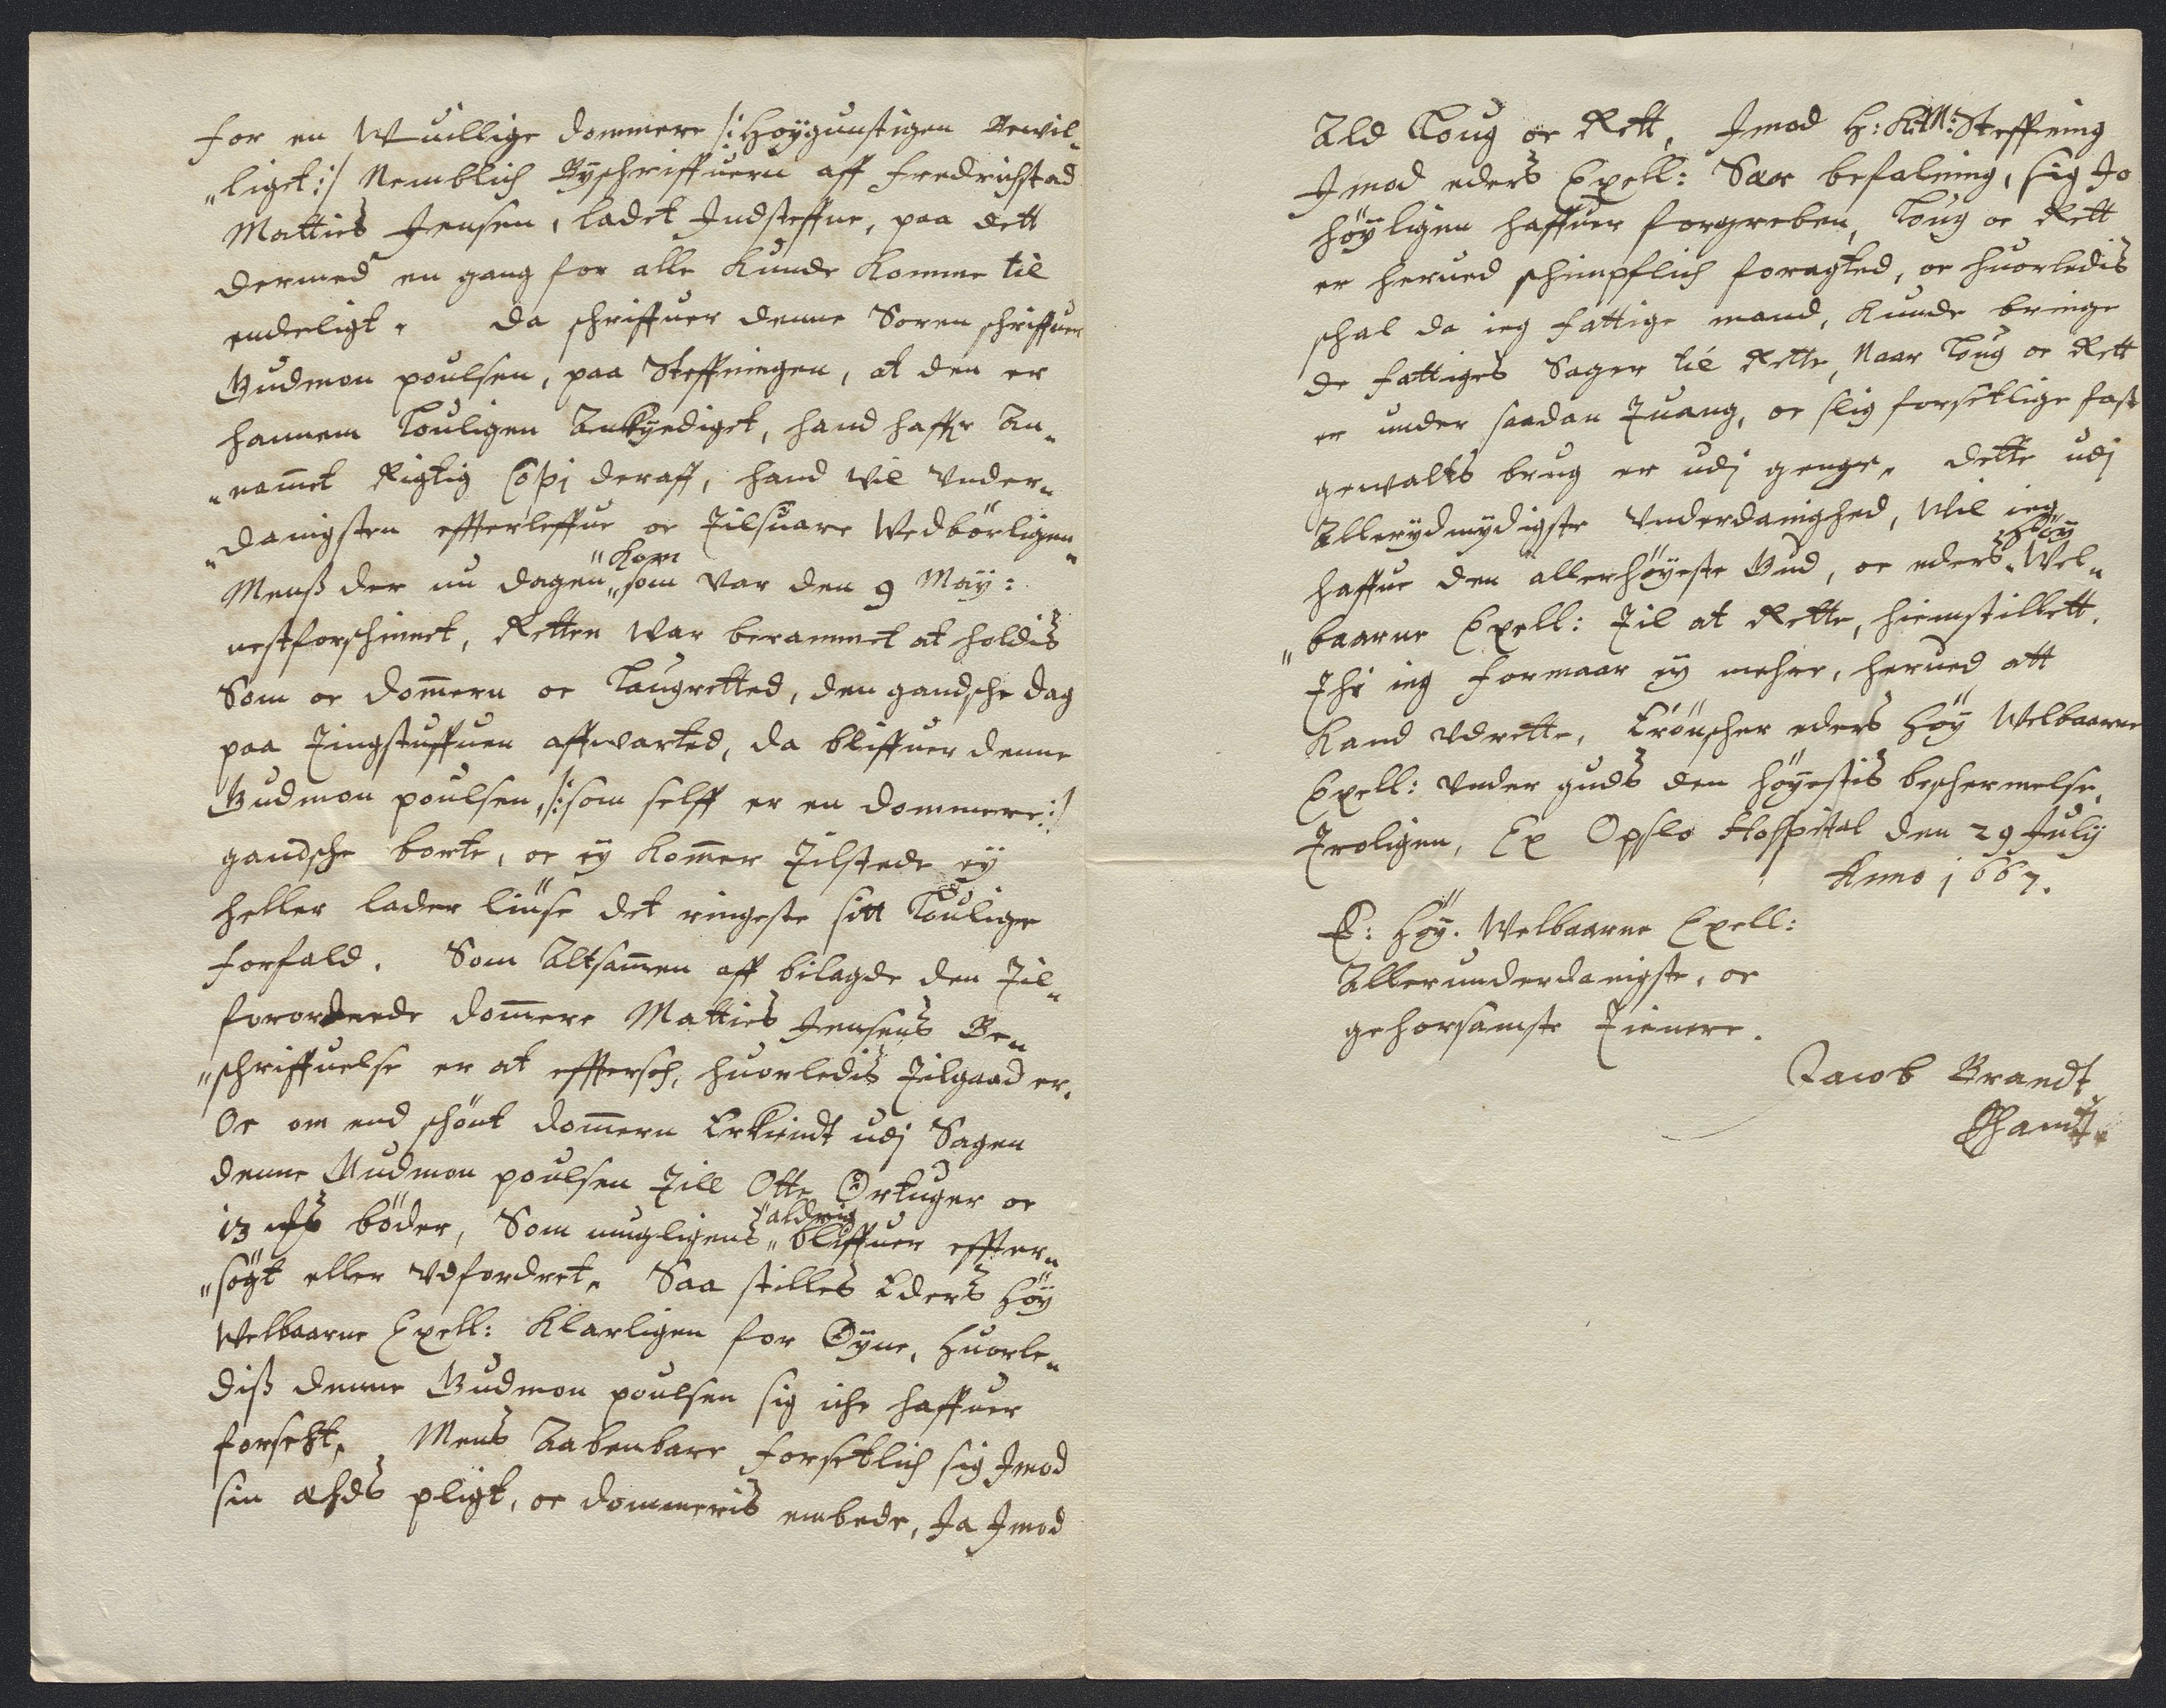 for en Wuillige dommere /: Høygunstigen bewil„
„liget :/ Nemblich Byschriffuern aff Fredrichstad
Matties Jensen, ladet Indsteffne, paa dett
dermed en gang for alle kunde komme til
endeligt. da schriffuer denne Soren schriffuer
Gudmon poulsen, paa Steffningen, at den er
hannem Louligen Ankyndiget, hand haffr An„
„nammet Rigtig Copj deraff, hand vil Vnder„
„danigsten effterleffue oc Tilsuare Wedbörligen„
Menß der nu dagen „kom som var den 9 Maÿ:
nestforschinnet, Retten War berammet at holdis
Som oc dommern oc Laugretted, den gandsche dag
paa Tingstuffuen affwarted, da bliffuer denne
Gudmon poulsen, /: som selff er en dommere :/
gandsche borte, oc eÿ kommer Tilstede eÿ
heller lader liuse det ringeste sitt Loulige
forfald. Som Altsammen aff bilagde den Til„
forordnede dommere Matties Jensens Be„
„schriffuelse er at effterseh, huorledis Tilgaad er.
Oc om end schönt dommern Erkiendt udj Sagen
denne Gudmon poulsen Till Otte Ørtuger oc
13 mß böder, Som mugligens „aldrig bliffuer effter„
„sögt eller Vdfordret. Saa stilles Eders Höÿ
Welbaarne Exell: Klarligen for Øyne, Huorle„
diß denne Gudmon poulsen sig iche haffuer
forseht, Mens Aabenbare forsetlich sig Imod
sin æhds pligt, oc dommeris embede, Ja Imod
Ald Loug oc Rett, Imod H: K: M: Steffning
Imod eders Exell: Sær befalning, sig Jo
höÿligen haffuer forgreben, Loug oc Rett
er herued schimpflich foragted, oc huorledis
schal da ieg fattige mand, kunde bringe
de fattiges Sager til Rette, Naar Loug oc Rett
er under saadan Tuang, oc slig forsetlige fast
gewalts brug er udj genge. dette udj
Allerydmydigste Vnderdanighed, Wil ieg
haffue den allerhöÿeste Gud, oc eders „Höÿ Wel„
„baarne Exell: Til at Rette, hiemstillett.
Thi ieg formaar eÿ mehre, herued att
kand Vdrette, Erönscher eders Höÿ Welbaarne
Exell: Vnder guds den höÿestis beschermelse,
Troligen, Ex Opslo Hospital den 29 Julij
Anno 1667.
E: Höÿ. Welbaarne Exell:
Allerunderdanigste, oc
gehorsamste Tienere.
Jacob Brandt
Ehandt.